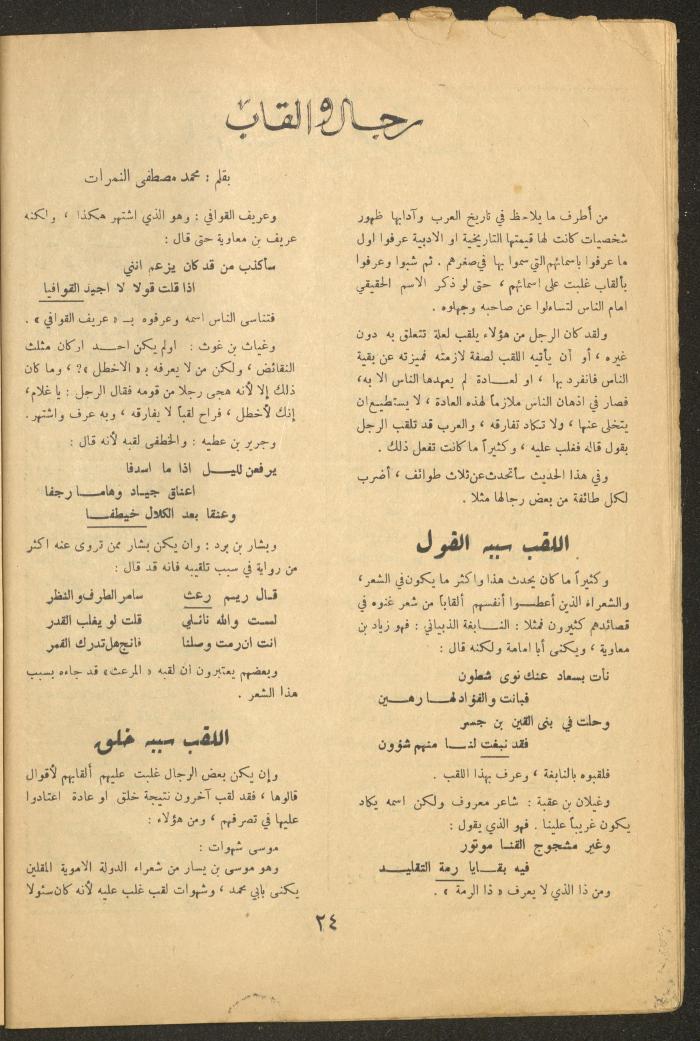 رجال والقاب
بقلم : محمد مصطفى النمرات
من أطرف ما يلاحظ في تاريخ العرب وآدابها ظهور
شخصيات كانت لها قيمتها التاريخية او الادبية عرفوا اول
ما عرفوا باسمائهم التي سموا بها في صغرهم . ثم شبوا وعرفوا
بألقاب غلبت على اسمائهم ، حتى لو ذكر الاسم الحقيقي
امام الناس لتساءلوا عن صاحبه وجهلوه .
ولقد كان الرجل من هؤلاء يلقب لعلة تتعلق به دون
غيره ، أو أن يأتيه اللقب لصفة لازمته فميزته عن بقية
الناس فانفرد بها ، او لعادة لم يعهدها الناس الا به،
فصار في اذهان الناس ملازماً لهذه العادة ، لا يستطيع ان
يتخلى عنها ، ولا تكاد تفارقه ، والعرب قد تلقب الرجل
بقول قاله فغلب عليه ، وكثيراً ما كانت تفعل ذلك .
وفي هذا الحديث سأتحدث عن ثلاث طوائف ، أضرب
لكل طائفة من بعض رجالها مثلا .
اللقب سببه القول
وكثيراً ما كان يحدث هذا واكثر ما يكون في الشعر،
والشعراء الذين أعطوا أنفسهم ألقاباً من شعر غنوه في
قصائدهم كثيرون فمثلا : النابغة الذبياني : فهو زياد بن
معاوية ، ويكنى أبا امامة ولكنه قال :
نأت بسعاد عنك نوى شطون
فبانت والفؤاد لها رهين
وحلت في بنى القين بن جسر
فقد نبغت لنا منهم شؤون
فلقبوه بالنابغة ، وعرف بهذا اللقب .
وغيلان بن عقبة : شاعر معروف ولكن اسمه يكاد
يكون غريباً علينا . فهو الذي يقول :
وغير مشجوج القفا موتور
فيه بقايا رمة التقليد
ومن ذا الذي لا يعرف « ذا الرمة » .
وعريف القوافي : وهو الذي اشتهر هكذا ، ولكنه
عريف بن معاوية حتى قال :
سأكذب من قد كان يزعم انني
اذا قلت قولا لا اجيد القوافيا
فتناسى الناس اسمه وعرفوه بـ « عريف القوافي » .
وغياث بن غوث : اولم يكن احد اركان مثلث
النقائض ، ولكن من لا يعرفه بـ « الاخطل »؟ ، وما كان
ذلك إلا لأنه هجى رجلا من قومه فقال الرجل : يا غلام،
إنك لأخطل ، فراح لقباً لا يفارقه ، وبه عرف واشتهر.
وجرير بن عطيه : والخطفى لقبه لأنه قال :
يرفعن لليل اذا ما اسدفا
اعناق جياد وهاما رجفا
وعنقا بعد الكلال خيطفا
وبشار بن برد : وان يكن بشار ممن تروى عنه اكثر
من رواية في سبب تلقيبه فانه قد قال :
قال ريم رعث ساحر الطرف والنظر
لست والله نائلي قلت لو يغلب القدر
انت ان رمت وصلنا فانج هل تدرك القمر
وبعضهم يعتبرون أن لقبه « المرعث » قد جاءه بسبب
هذا الشعر .
اللقب سببه خلق
وإن يكن بعض الرجال غلبت عليهم ألقابهم لأقوال
قالوها ، فقد لقب آخرون نتيجة خلق او عادة اعتادوا
عليها في تصرفهم ، ومن هؤلاء :
موسى شهوات :
وهو موسى بن يسار من شعراء الدولة الاموية المقلين
يكنى بابي محمد ، وشهوات لقب غلب عليه لأنه كان سئولا
٢٤